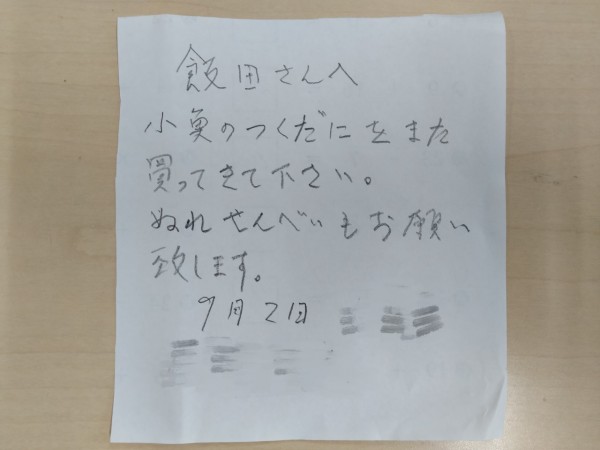 飯田さんへ
小魚のつくだにをまた
買ってきて下さい。
ぬれせんべいもお願い
致します。
9月2日